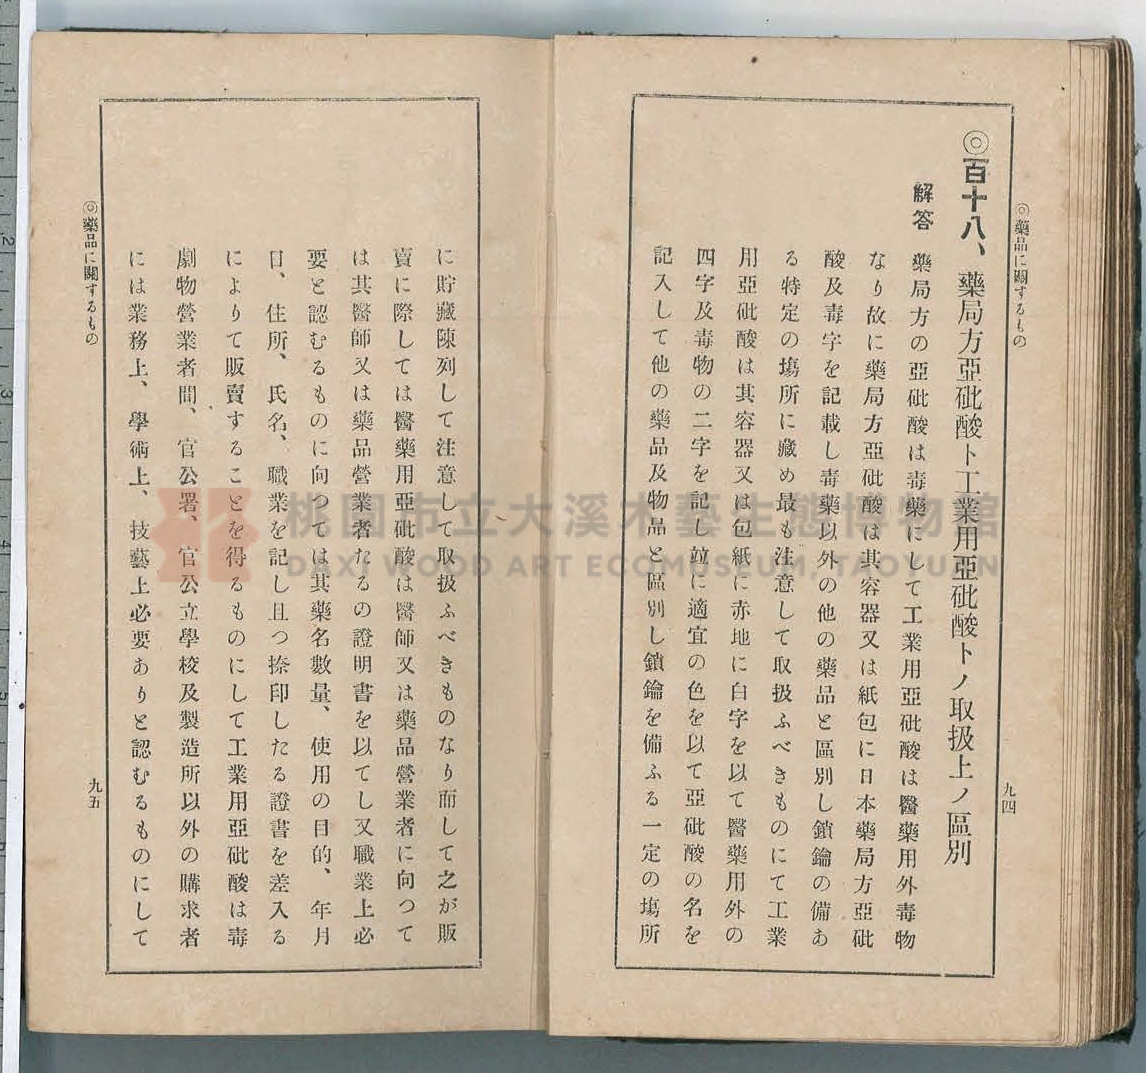 ◎藥品に關するもの
九四
◎百十八、藥局方亞砒酸ト工業用亞砒酸トノ取扱上ノ區別
解答
藥局方の亞砒酸は毒藥にして工業用亞砒酸は醫藥用外毒物
なり故に藥局方亞砒酸は其容器又は紙包に日本藥局方亞砒
酸及毒字を記載し毒藥以外の他の藥品と區別し鎖鑰の備あ
る特定の塲所に藏め最も注意して取扱ふべきものにて工業
用亞砒酸は其容器又は包紙に赤地に白字を以て醫藥用外の
四字及毒物の二字を記し竝に適宜の色を以て亞砒酸の名を
記入して他の藥品及物品と區別し鎖鑰を備ふる一定の塲所
に貯藏陳列して注意して取扱ふべきものなり而して之が販
賣に際しては醫藥用亞砒酸は醫師又は藥品營業者に向つて
は其醫師又は藥品營業者たるの證明書を以てし又職業上必
要と認むるものに向つては其藥名數量、使用の目的、年月
日、住所、氏名、職業を記し且つ捺印したる證書を差入る
によりて販賣することを得るものにして工業用亞砒酸は毒
劇物營業者間、官公署、官公立學校及製造所以外の購求者
には業務上、學術上、技藝上必要ありと認むるものにして
◎藥品に關するもの
九五
桃園市立大溪木藝生態博物館
DAXI WOOD ART ECOMUSEUM, TAOYUAN
2
3
4
5